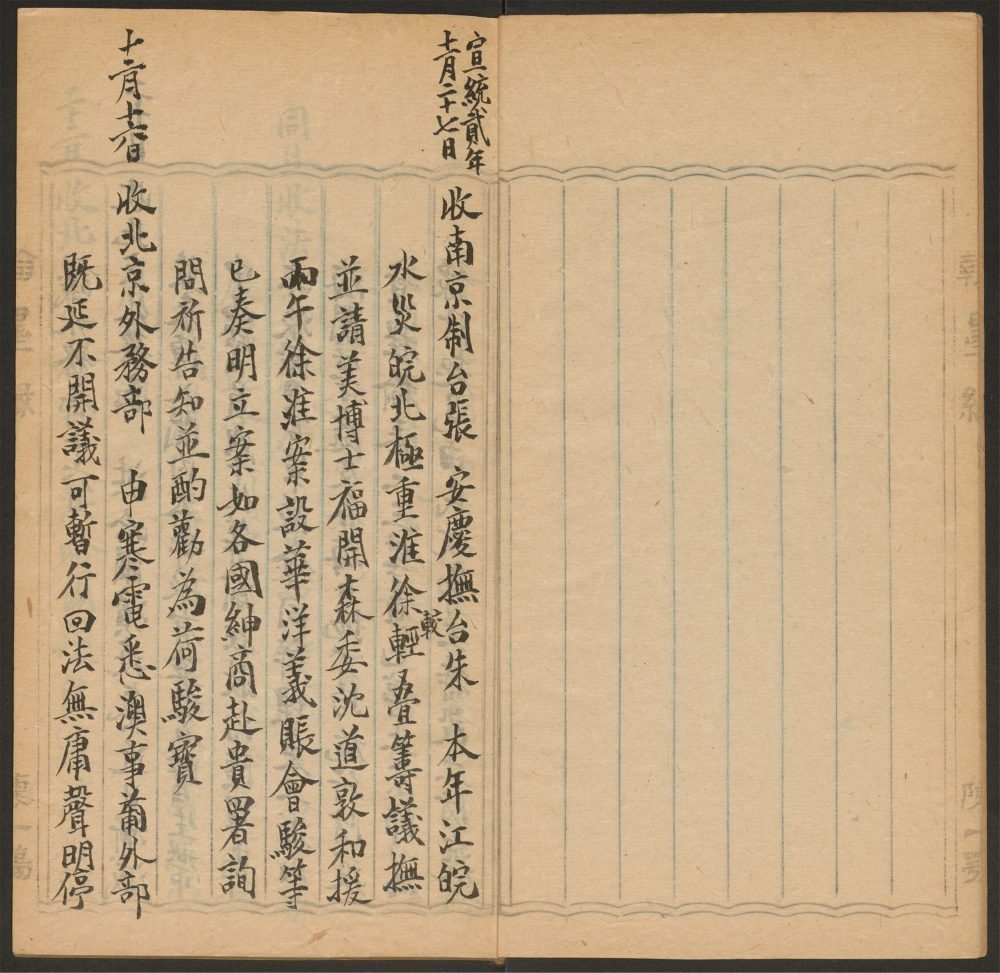 宣統貳年
十一月二十七日
收南京制台張 安慶撫台朱 本年江皖
水災皖北極重淮徐較輕叠籌議撫
並請美博士福開森委沈道敦和援
丙午徐淮案設華洋義賑會駿等
已奏明立案如各國紳商赴貴署詢
問祈告知並酌勸為荷駿寶
十二月十六日
收北京外務部 申寒電悉澳事葡外部
既延不開議可暫行回法無庸聲明停